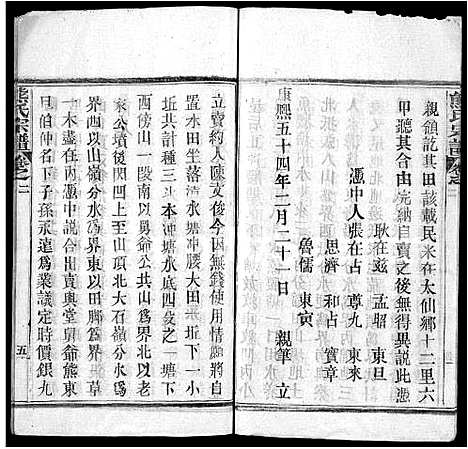 熊氏宗譜 卷之二
親領訖其田該載民米在太仙鄉十二里六
甲聽其合由完納自賣之後無得異說此憑
耿在廷 孟昭 東旦
憑中人張在占 尊九 東來
思濟 和占 寶章
魯儒 東寅
康熙五十四年二月二十一日 親筆 立
立賣約人陳文俊今因無錢使用情願將自
置水田坐落清水塘冲腰大田一坵坵下一小
坵共計種三斗本冲塘水底四股之一塘下
西傍山一段南以舅爺公共山為界北以老
家公墳後凹凹上至山頂北大石嶺分水為
界西以山嶺分水為界東以田腳為界草
木在界內憑中說合出賣與堂舅爺熊東
旦伯仲名下子孫永遠為業議定時價銀九
熊氏宗譜 卷之二 五